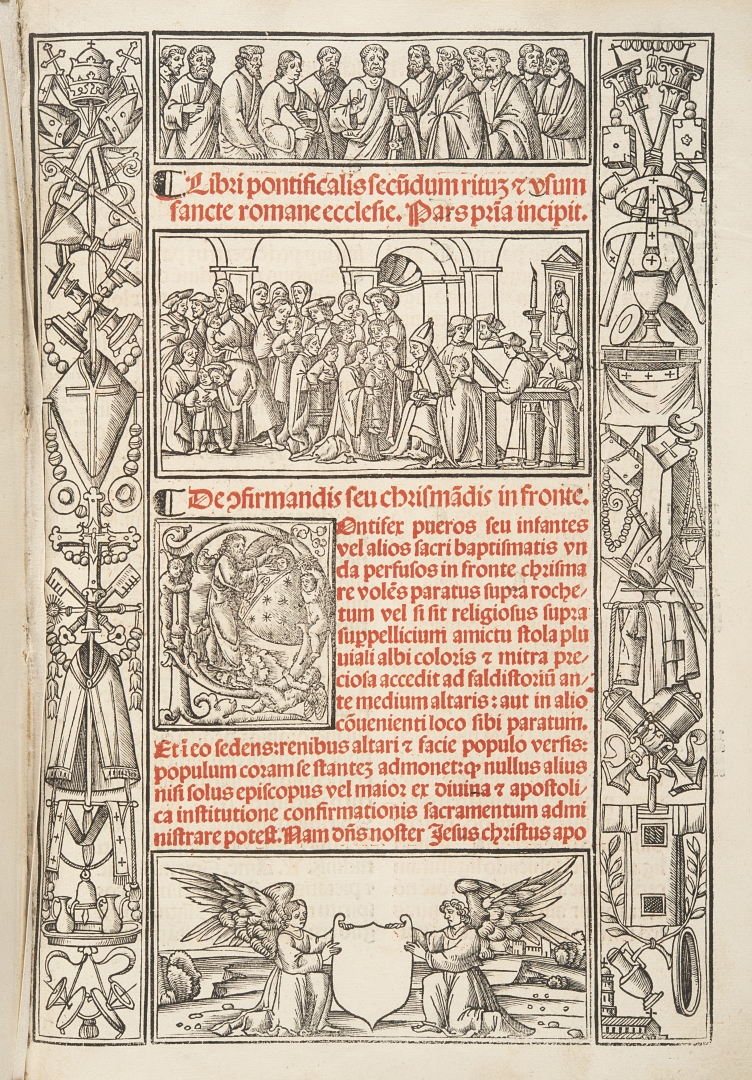 ¶ Libri pontificalis secũdum rituʒ ⁊ vsum
sancte romane ecclesie. Pars pria incipit.
¶ De ꝯfirmandis seu chrismãdis in fronte.
POntifex pueros seu infantes
vel alios sacri baptismatis vn
da perfusos in fronte chrisma
re volẽs paratus supra roche⸗
tum vel si sit religiosus supra
suppellicium amictu stola plu
uiali albi coloris ⁊ mitra pre⸗
ciosa accedit ad faldistoriũ an⸗
te medium altaris: aut in alio
cõuenienti loco sibi paratum.
Et ĩ eo sedens: renibus altari ⁊ facie populo versis:
populum coram se stanteʒ admonet: ꝙ nullus alius
nisi solus episcopus vel maior ex diuina ⁊ apostoli⸗
ca institutione confirmationis sacramentum admi
nistrare potest. Nam dñs noster Jesus christus apo